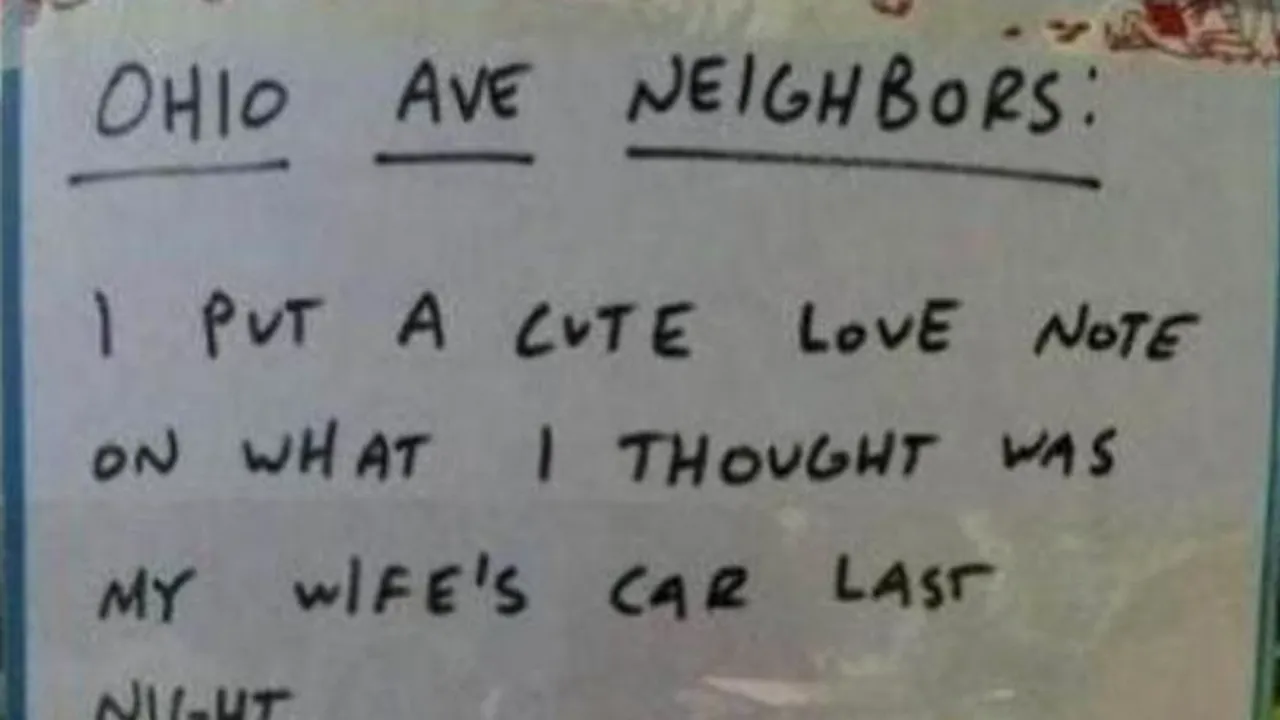 OHIO AVE NEIGHBORS:
I PUT A CUTE LOVE NOTE
ON WHAT I THOUGHT WAS
MY WIFE'S CAR LAST
NIGHT